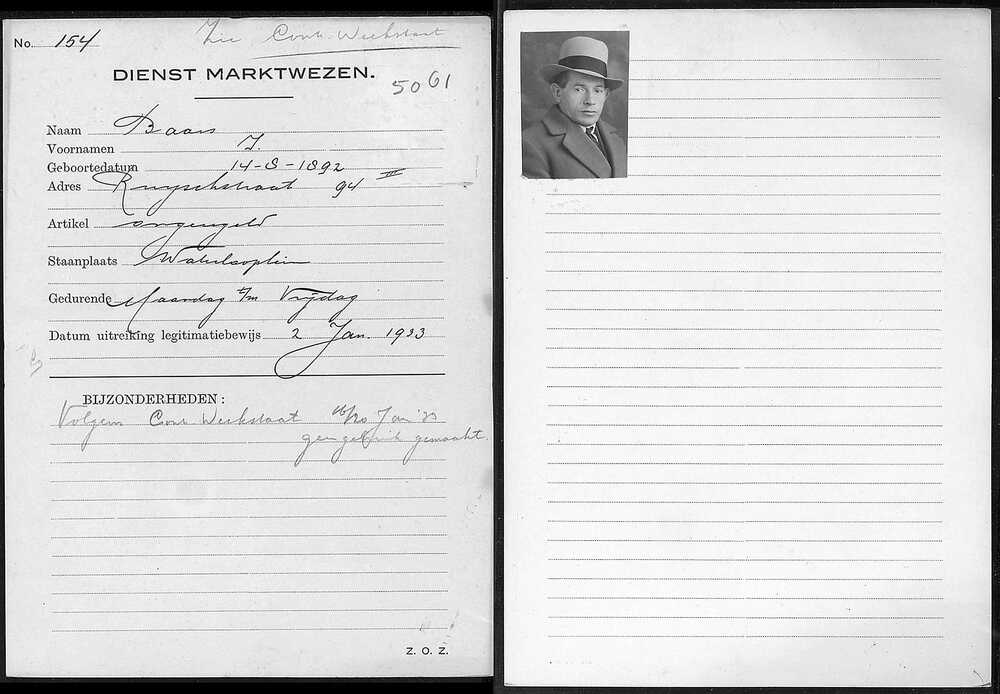 No. 154
Zie Contr. Weekstaat
DIENST MARKTWEZEN.
5061
Naam Baars
Voornamen I.
Geboortedatum 14-8-1892
Adres Ruyschstraat 94 III
Artikel ongeregeld
Staanplaats Waterlooplein
Gedurende Maandag t/m Vrijdag
Datum uitreiking legitimatiebewijs 2 Jan. 1923
BIJZONDERHEDEN:
Volgens Contr. Weekstaat 16/20 Jan '23
geen gebruik gemaakt.
Z. O. Z.